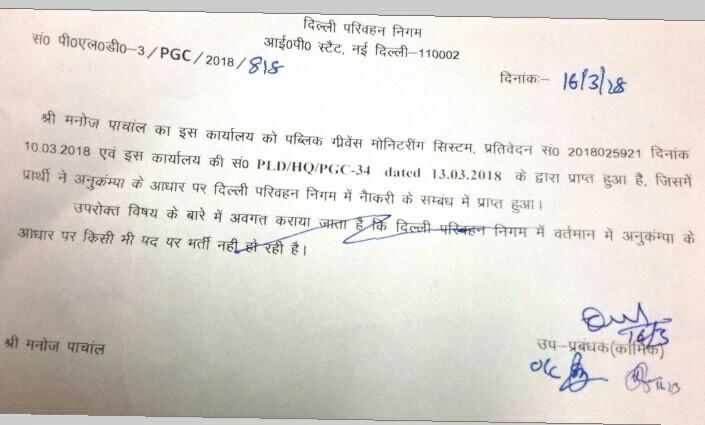 दिल्ली परिवहन निगम
आई0पी0 स्टैट, नई दिल्ली-110002
सं0 पी0एल0डी0-3/PGC/2018/818
दिनांक:- 16/3/28
श्री मनोज पाचांल का इस कार्यालय को पब्लिक ग्रीवेंस मोनिटरींग सिस्टम, प्रतिवेदन सं0 2018025921 दिनांक
10.03.2018 एवं इस कार्यालय की सं0 PLD/HQ/PGC-34 dated 13.03.2018 के द्वारा प्राप्त हुआ है, जिसमें
प्रार्थी ने अनुकम्पा के आधार पर दिल्ली परिवहन निगम में नौकरी के सम्बंध में प्राप्त हुआ।
उपरोक्त विषय के बारे में अवगत कराया जाता है कि दिल्ली परिवहन निगम में वर्तमान में अनुकंम्पा के
आधार पर किसी भी पद पर भर्ती नही हो रही है।
16/3
श्री मनोज पाचांल
उप-प्रबंधक(कार्मिक)
O/C